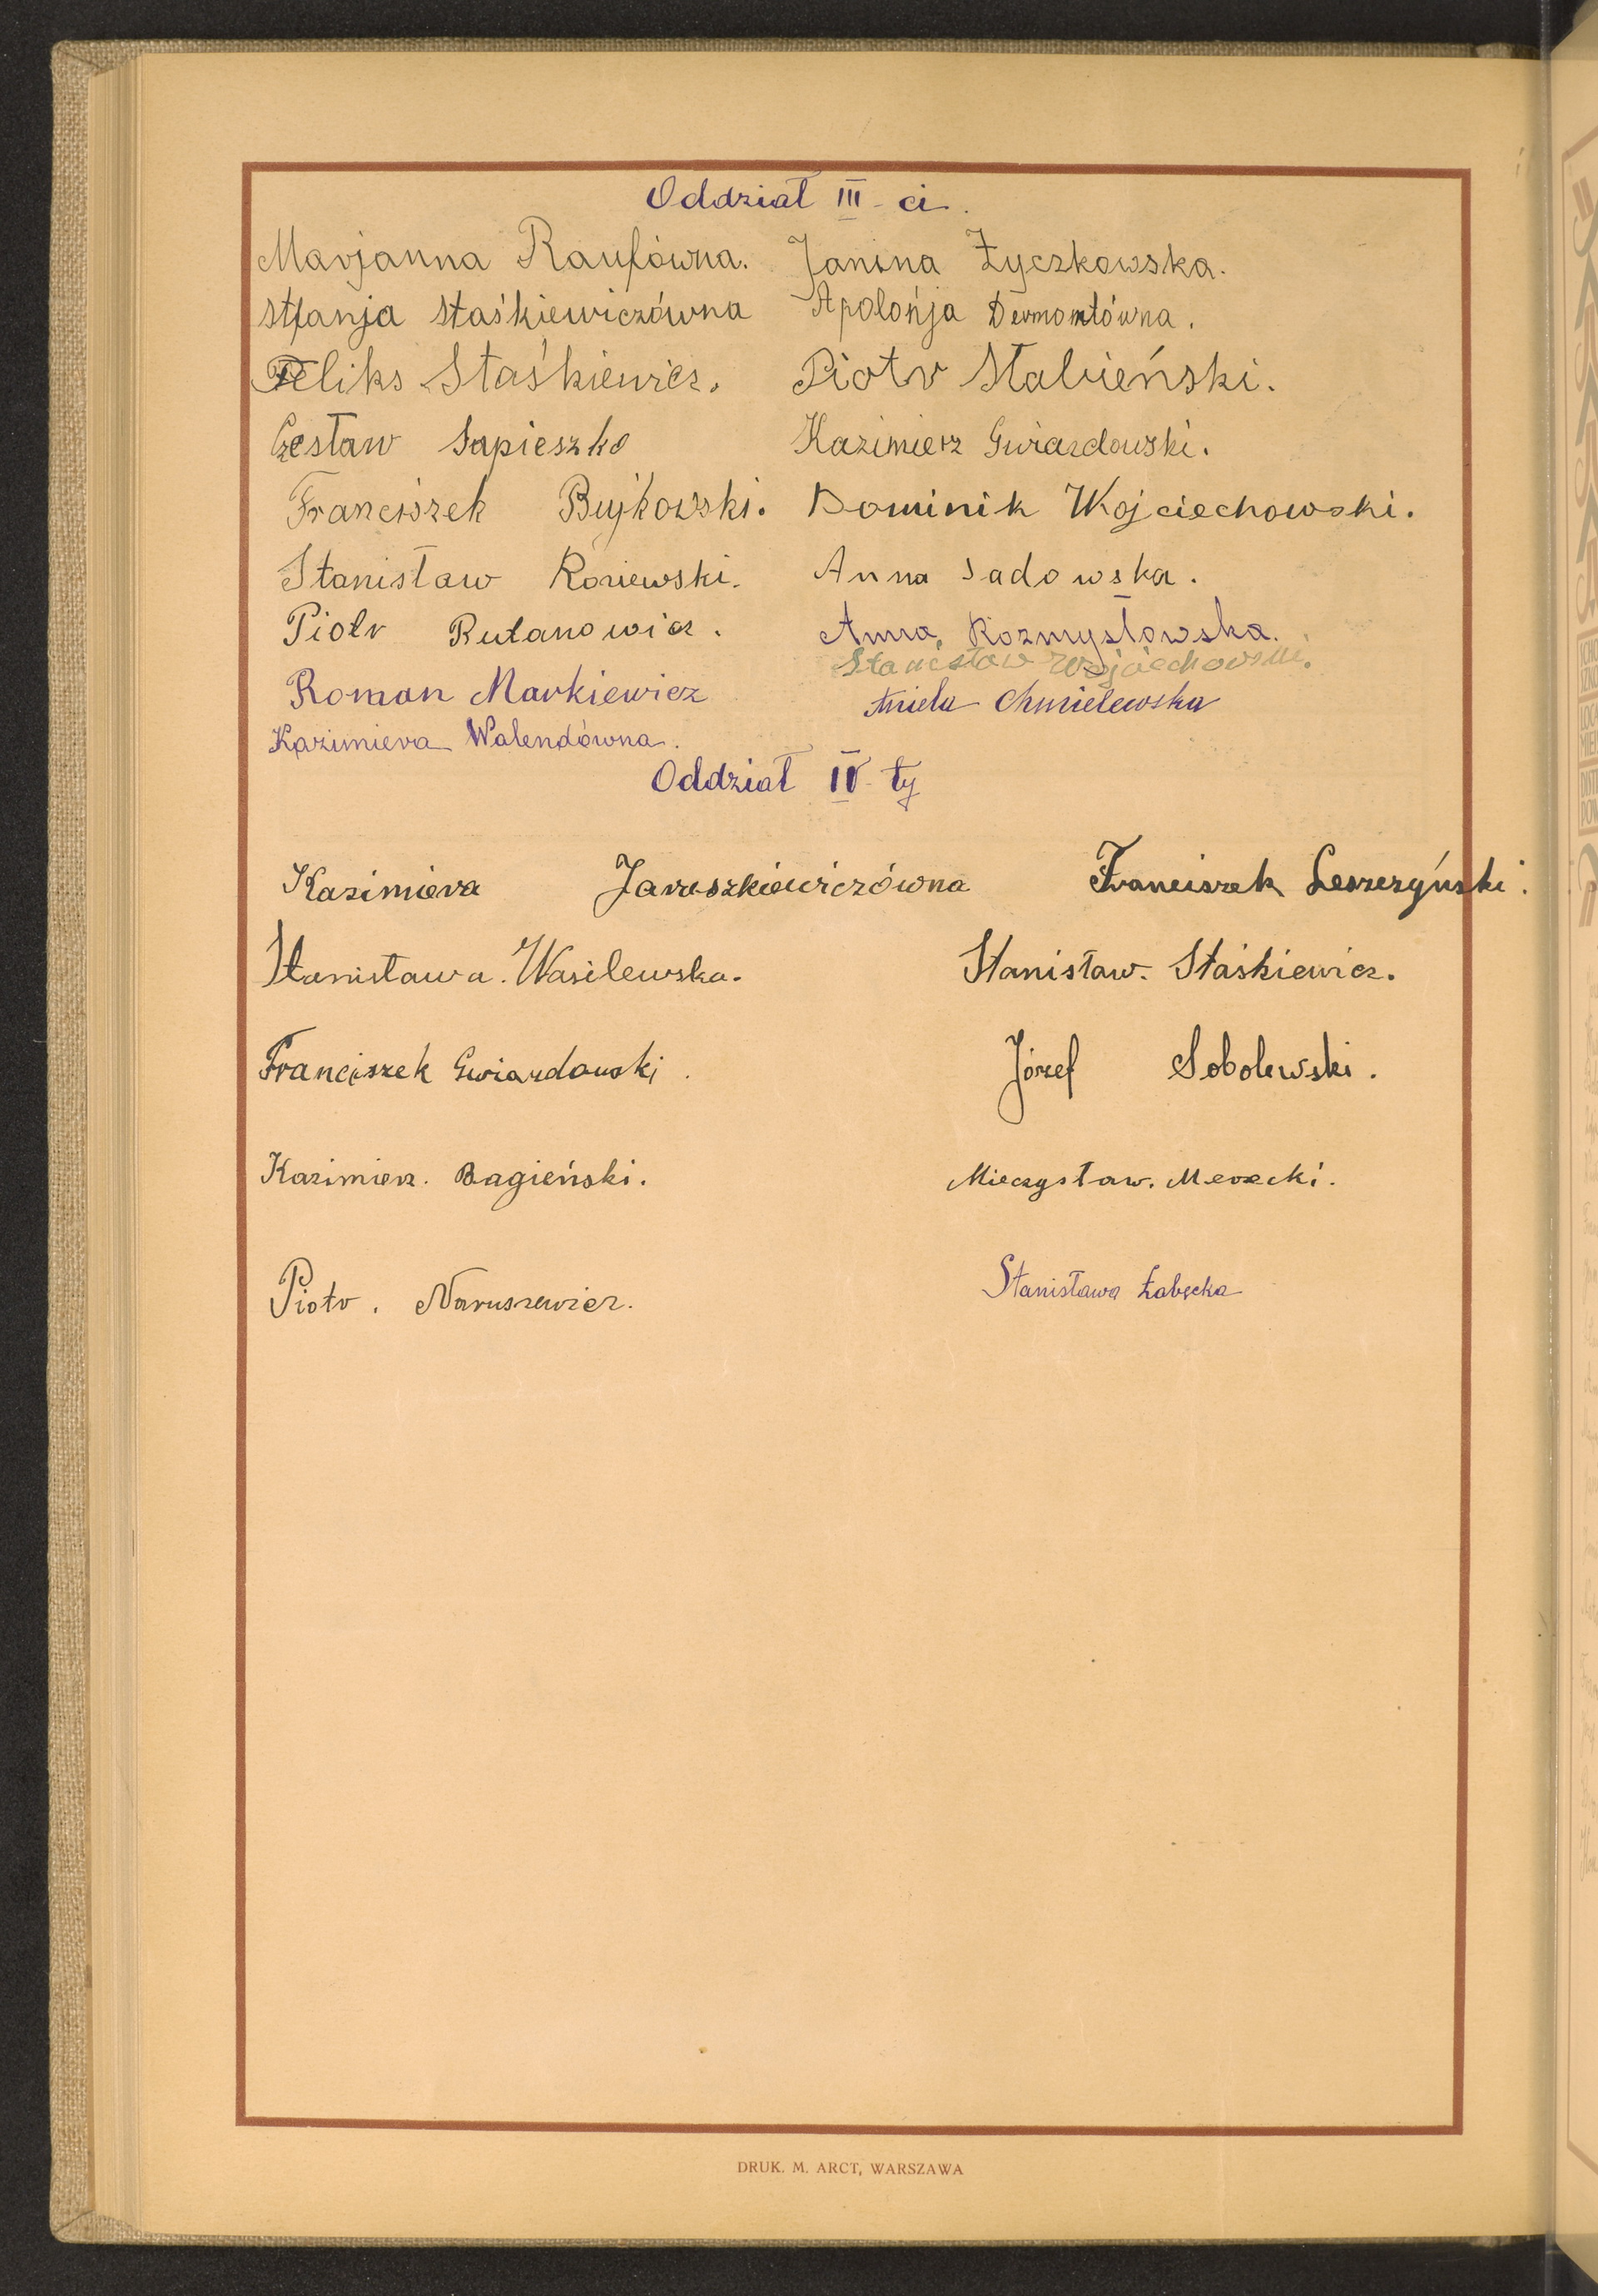 Oddział III-ci.
Marjanna Raufówna. Janina Życzkowska.
Stfanja Staśkiewiczówna Apolońja Dermontówna.
Feliks Staśkiewicz. Piotr Stabieński.
Czesław Sapieszko Kazimierz Gwiazdowski.
Franciszek Bujkowski. Dominik Wojciechowski.
Stanisław Roniewski. Anna Sadowska.
Piotr Rutanowicz. Anna Rozmysłowska.
Stanisław Wojciechowski.
Roman Markiewicz Aniela Chmielewska
Kazimiera Walendówna.
Oddział IV-ty
Kazimiera Jaruszkiewiczówna Franciszek Leszczyński.
Stanisława. Wasilewska. Stanisław. Staśkiewicz.
Franciszek Gwiazdowski. Józef Sobolewski.
Kazimierz. Bagieński. Mieczysław. Merecki.
Piotr. Naruszewicz. Stanisława Łabęcka
DRUK. M. ARCT, WARSZAWA